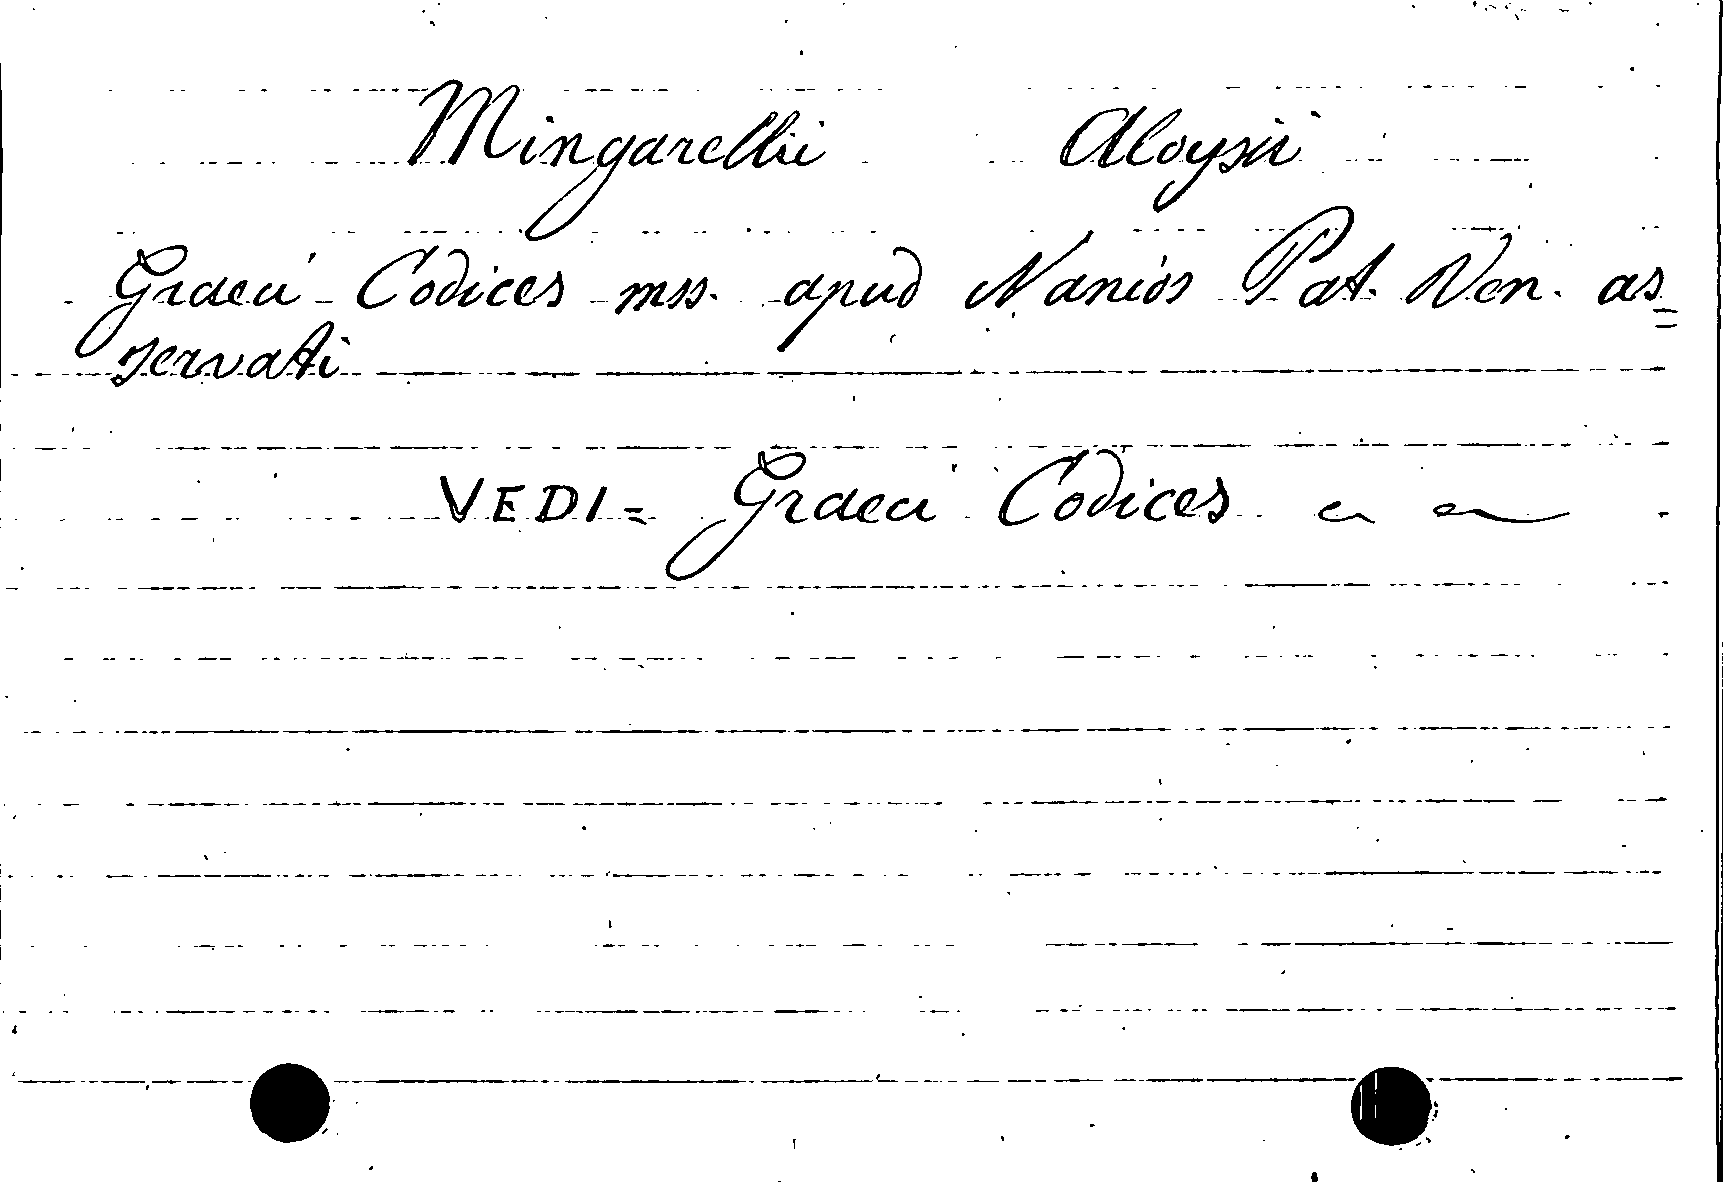 Mingarellii Aloysii
Graeci Codices mss. apud Nanios Pat. Ven. as=
servati
VEDI = Graeci Codices